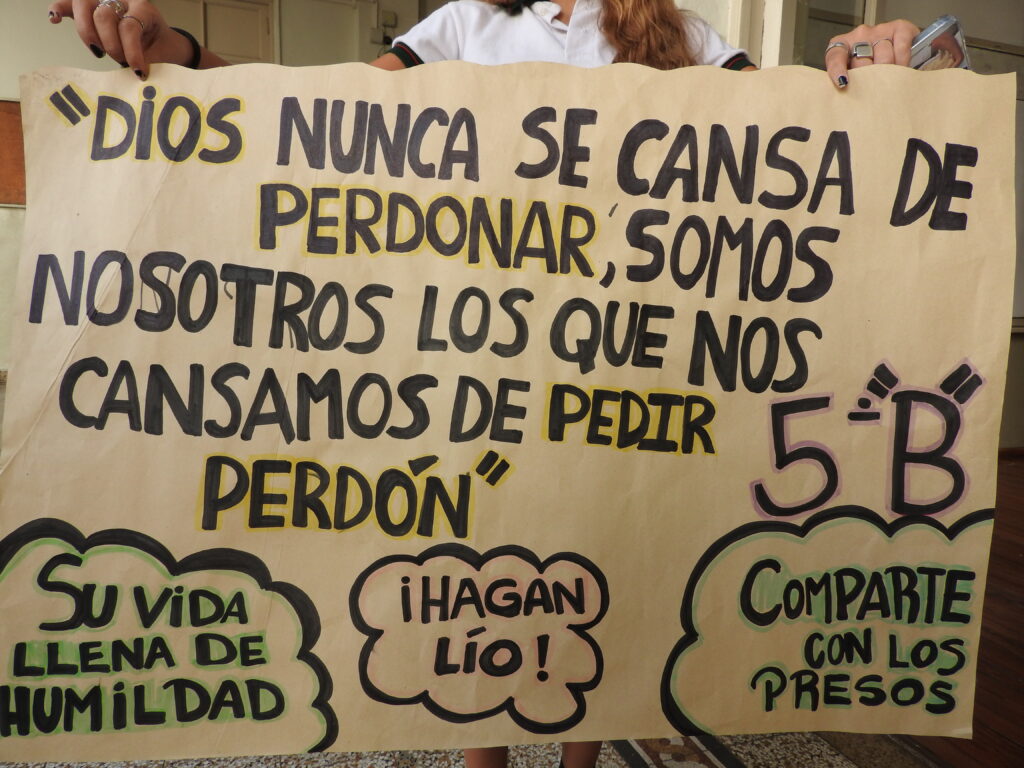 "DiOS NUNCA SE CANSA DE
PERDONAR, SOMOS
NOSOTROS LOS QUE NOS
CANSAMOS DE PEDIR
PERDÓN"
5 "B"
SU ViDA
LLENA DE
HUMiLDAD
¡HAGAN
LÍO!
COMPARTE
CON LOS
PRESOS